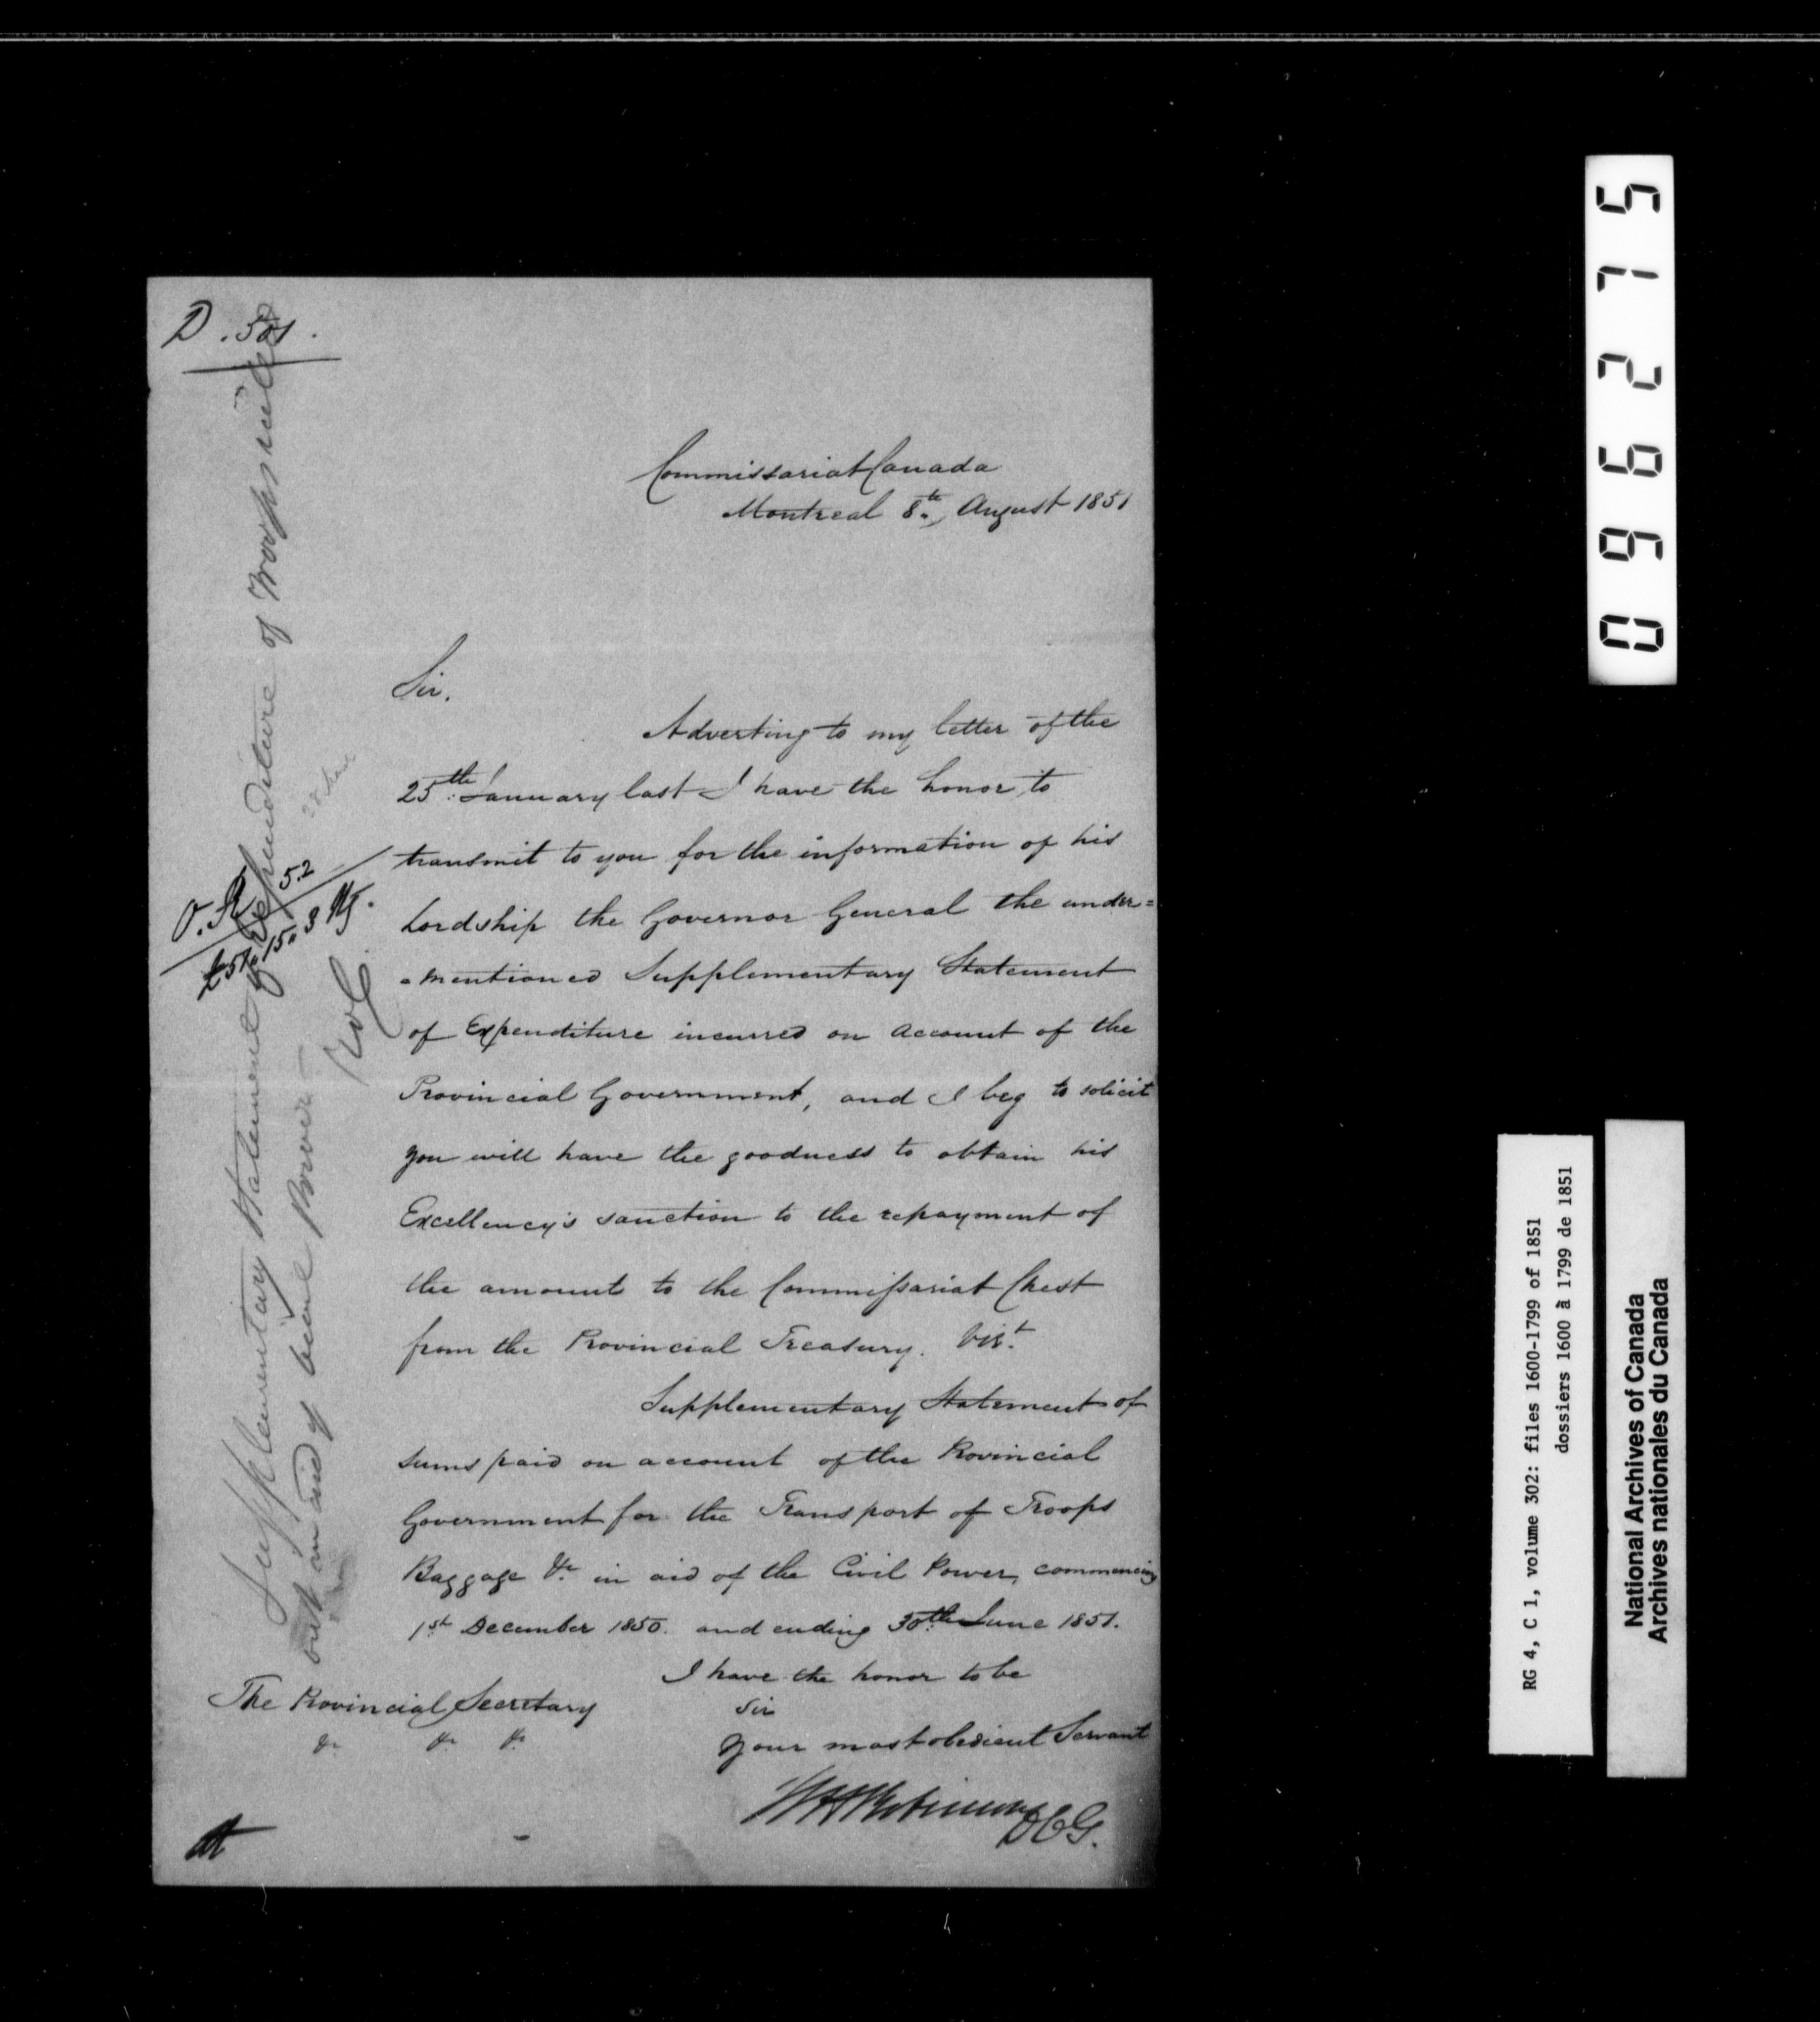 D. 501.
Commissariat Canada
Montreal 8th August 1851
Sir.
Adverting to my letter of the
25th January last I have the honor to
transmit to you for the information of his
Lordship the Governor General the under=
=mentioned Supplementary Statement
of Expenditure incurred on account of the
Provincial Government, and I beg to solicit
you will have the goodness to obtain his
Excellency's sanction to the repayment of
the amount to the Commissariat Chest
from the Provincial Treasury. Vizt
Supplementary Statement of
sums paid on account of the Provincial
Government for the Transport of Troops
Baggage &c in aid of the Civil Power, commencing
1st December 1850. and ending 30th June 1851.
I have the honor to be
Sir
Your most obedient Servant
W H Robinson DCG.
The Provincial Secretary
&c &c &c
Supplementary Statement of Expenditure of Troops
out in aid of Civil Power
O.R. 5.2
£51. 15. 3
096275
RG 4, C 1, volume 302: files 1600-1799 of 1851
dossiers 1600 à 1799 de 1851
National Archives of Canada
Archives nationales du Canada